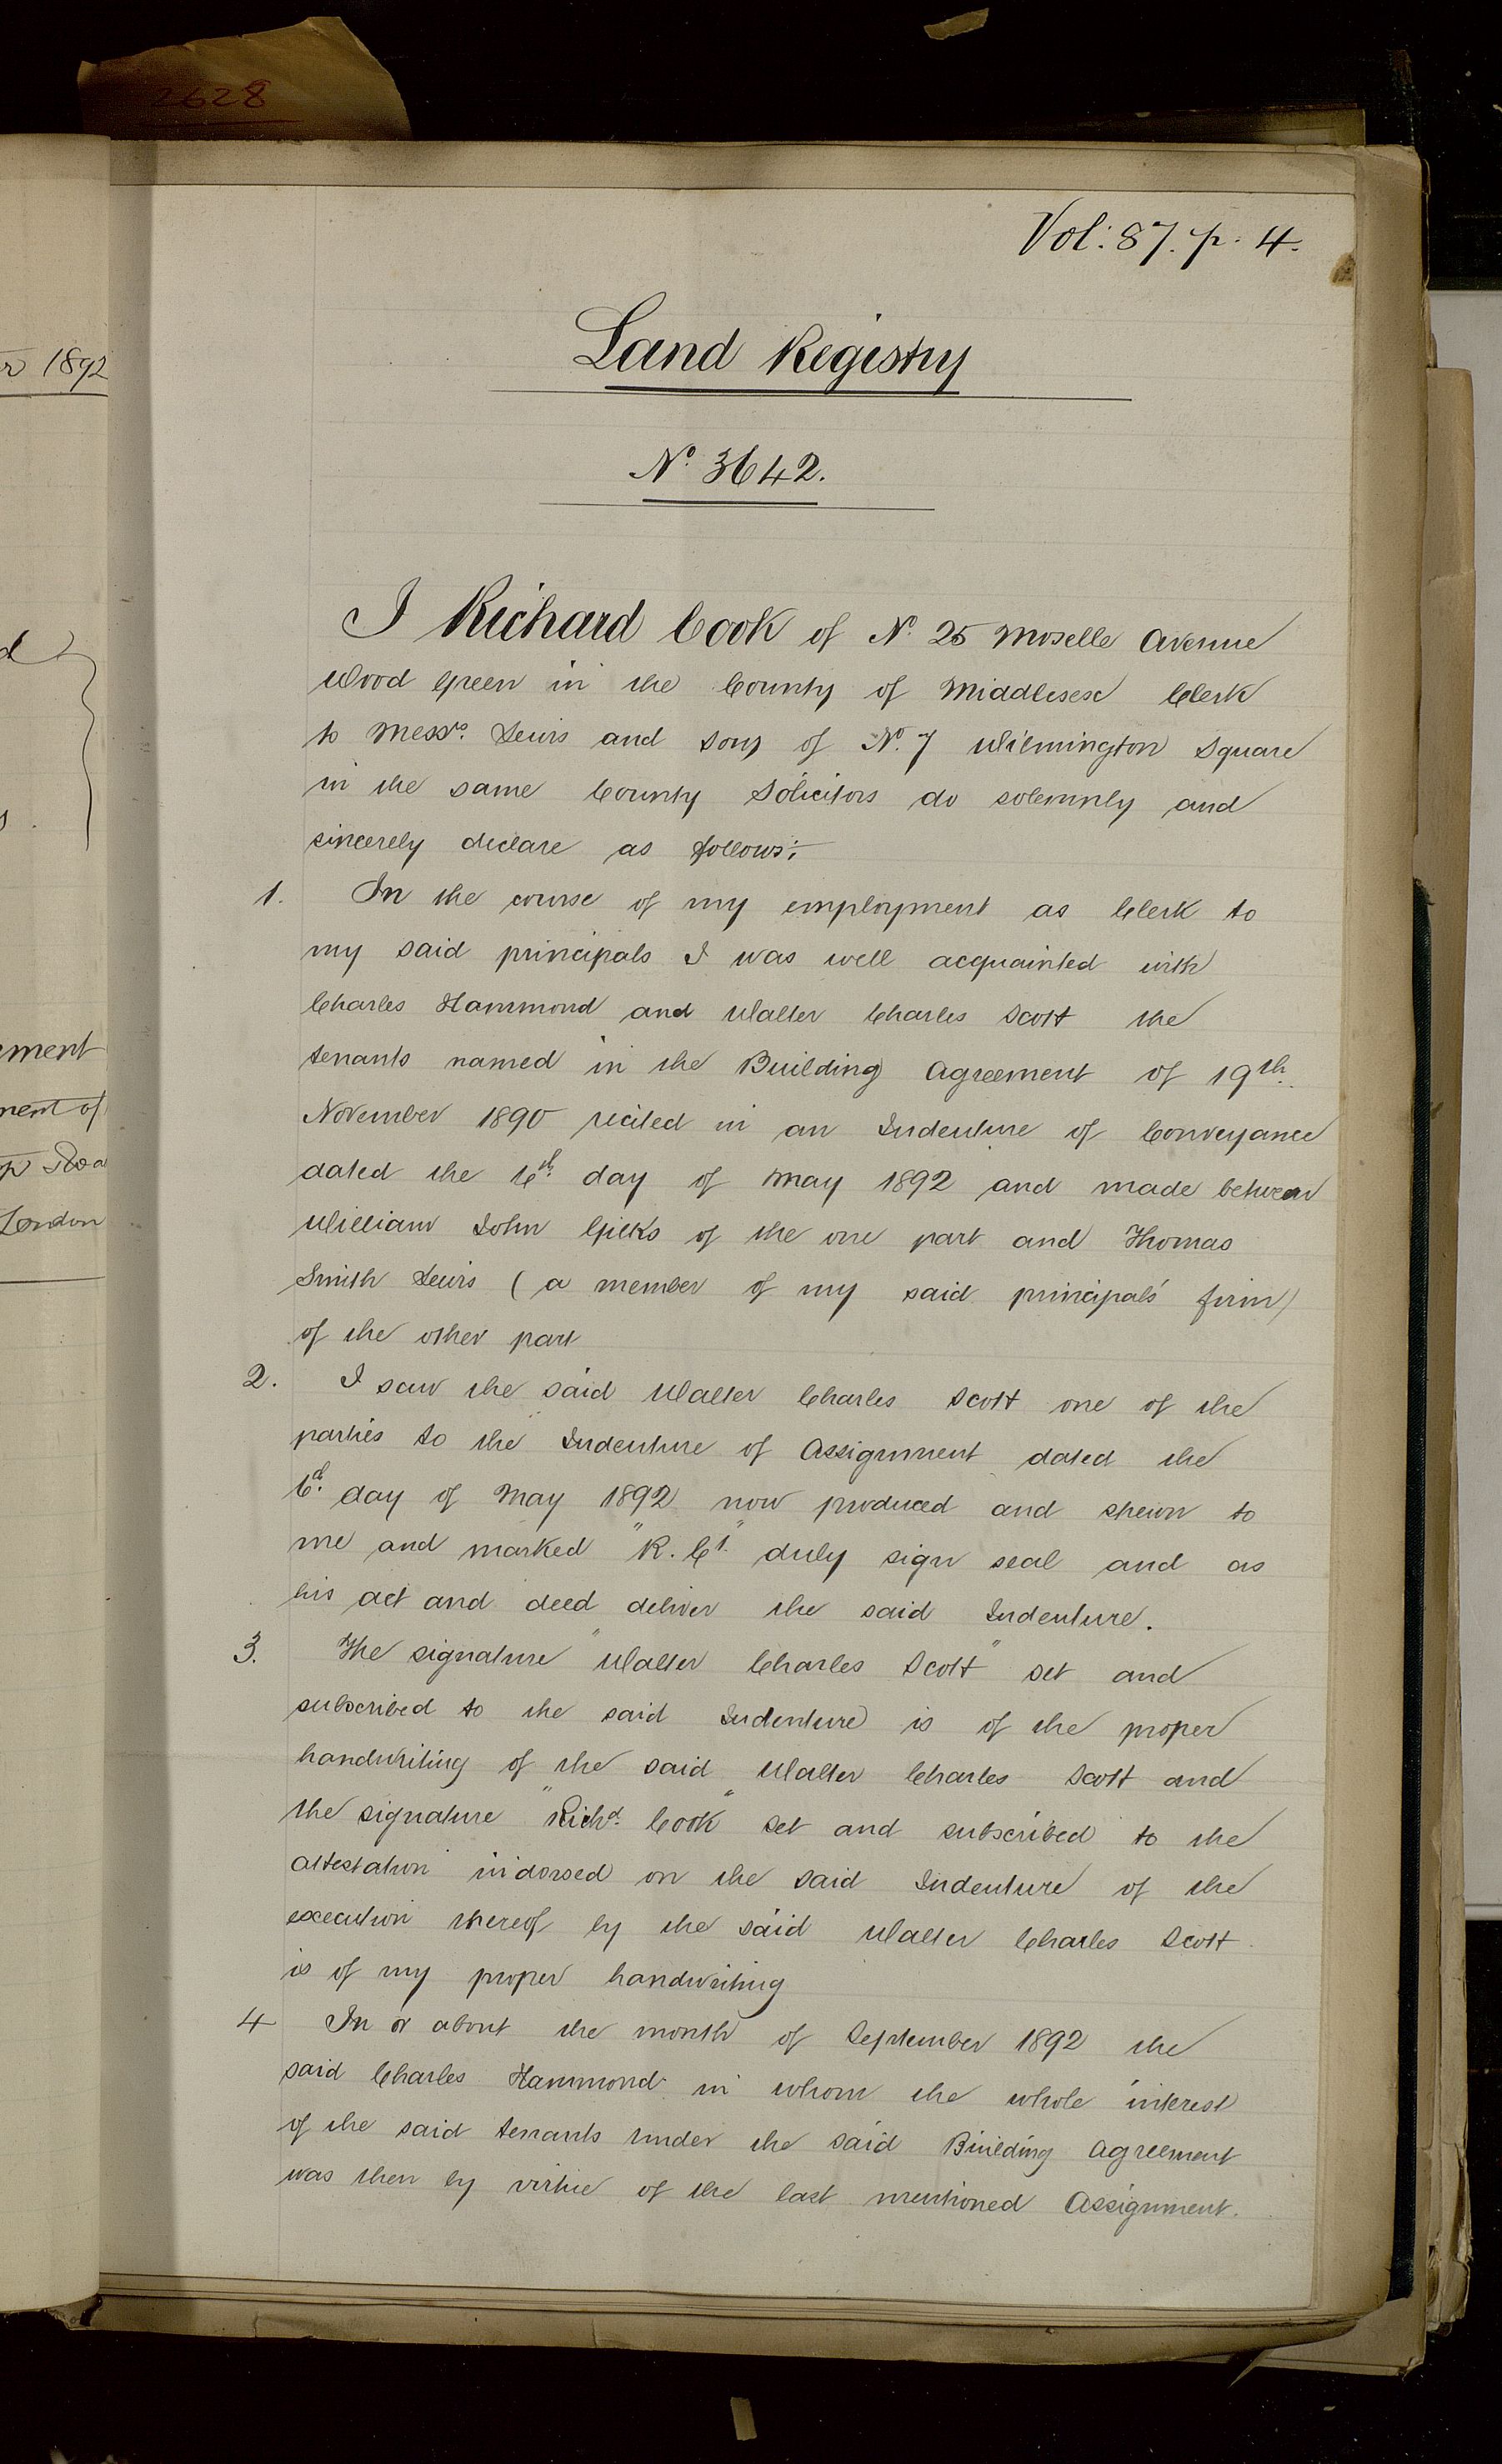 2628
r 1892
d
s.
ement
ment of
p Roa
London
Vol: 87. p. 4.
Land Registry
No. 3642.
I Richard Cook of No. 25 Moselle Avenue
Wood Green in the County of Middlesex Clerk
to Messrs. Lewis and Sons of No. 7 Wilmington Square
in the same County Solicitors do solemnly and
sincerely declare as follows:-
1. In the course of my employment as Clerk to
my said principals I was well acquainted with
Charles Hammond and Walter Charles Scott the
tenants named in the Building Agreement of 19th.
November 1890 recited in an Indenture of Conveyance
dated the 6th. day of May 1892 and made between
William John Gilks of the one part and Thomas
Smith Lewis (a member of my said principals' firm)
of the other part
2. I saw the said Walter Charles Scott one of the
parties to the Indenture of Assignment dated the
6th. day of May 1892 now produced and shewn to
me and marked "R. C 1." duly sign seal and as
his act and deed deliver the said Indenture.
3. The signature "Walter Charles Scott" set and
subscribed to the said Indenture is of the proper
handwriting of the said Walter Charles Scott and
the signature "Richd. Cook" set and subscribed to the
attestation indorsed on the said Indenture of the
execution thereof by the said Walter Charles Scott
is of my proper handwriting
4 In or about the month of September 1892 the
said Charles Hammond in whom the whole interest
of the said tenants under the said Building Agreement
was then by virtue of the last mentioned Assignment.